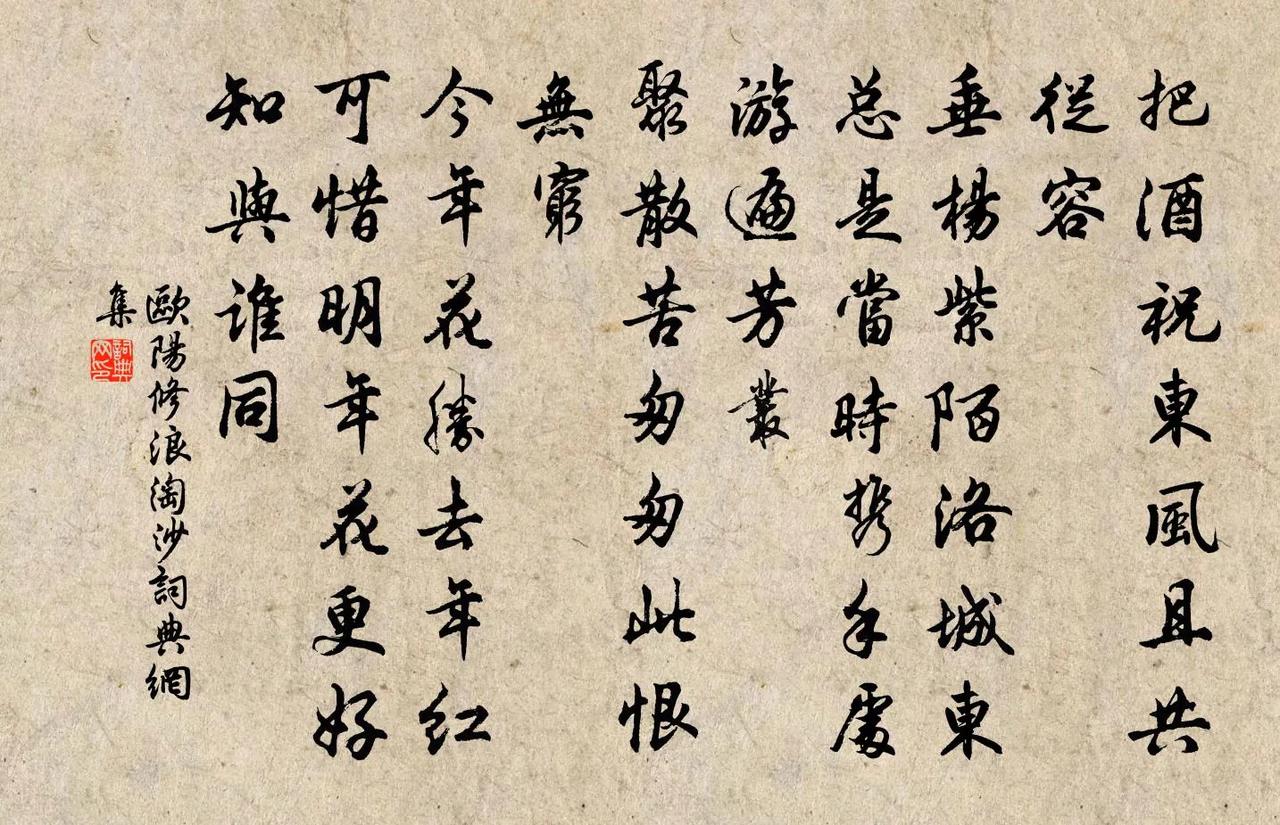 把酒祝東風且共
從容
垂楊紫陌洛城東
总是當時携手處
游遍芳叢
聚散苦匆匆此恨
無窮
今年花勝去年紅
可惜明年花更好
知與誰同
歐陽修浪淘沙詞典網
集
詞典
网印